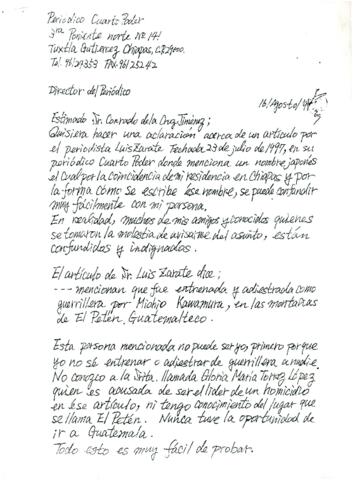 Periódico Cuarto Poder
3ra Poniente norte No 141
Tuxtla Gutierrez Chiapas, C.P. 29000.
Tel. 961 29353 FAX. 961 25242
Director del Periódico
16/Agosto/97
Estimado Sr. Conrado de la Cruz Jiménez;
Quisiera hacer una aclaración acerca de un artículo por
el periodista Luis Zarate Fechada 23 de julio de 1997, en su
periódico Cuarto Poder donde menciona un nombre japonés
el cual por la coincidencia de mi residencia en Chiapas y por
la forma cómo se escribe ese nombre, se puede confundir
muy fácilmente con mi persona.
En realidad, muchos de mis amigos y conocidos quienes
se tomaron la molestia de avisarme del asunto, están
confundidos y indignados.
El artículo de Sr. Luis Zarate dice;
--- mencionan que fue entrenada y adiestrada como
guerrillera por Michio Kawamura, en las montañas
de El Petén, Guatemalteco.
Esta persona mencionada no puede ser yo, primero porque
yo no sé entrenar o adiestrar de guerrillera a nadie.
No conozco a la Srita. llamada Gloria María Torrez López
quien es acusada de ser el líder de un homicidio
en ese artículo, ni tengo conocimiento del lugar que
se llama El Petén. Nunca tuve la oportunidad de
ir a Guatemala.
Todo esto es muy fácil de probar.